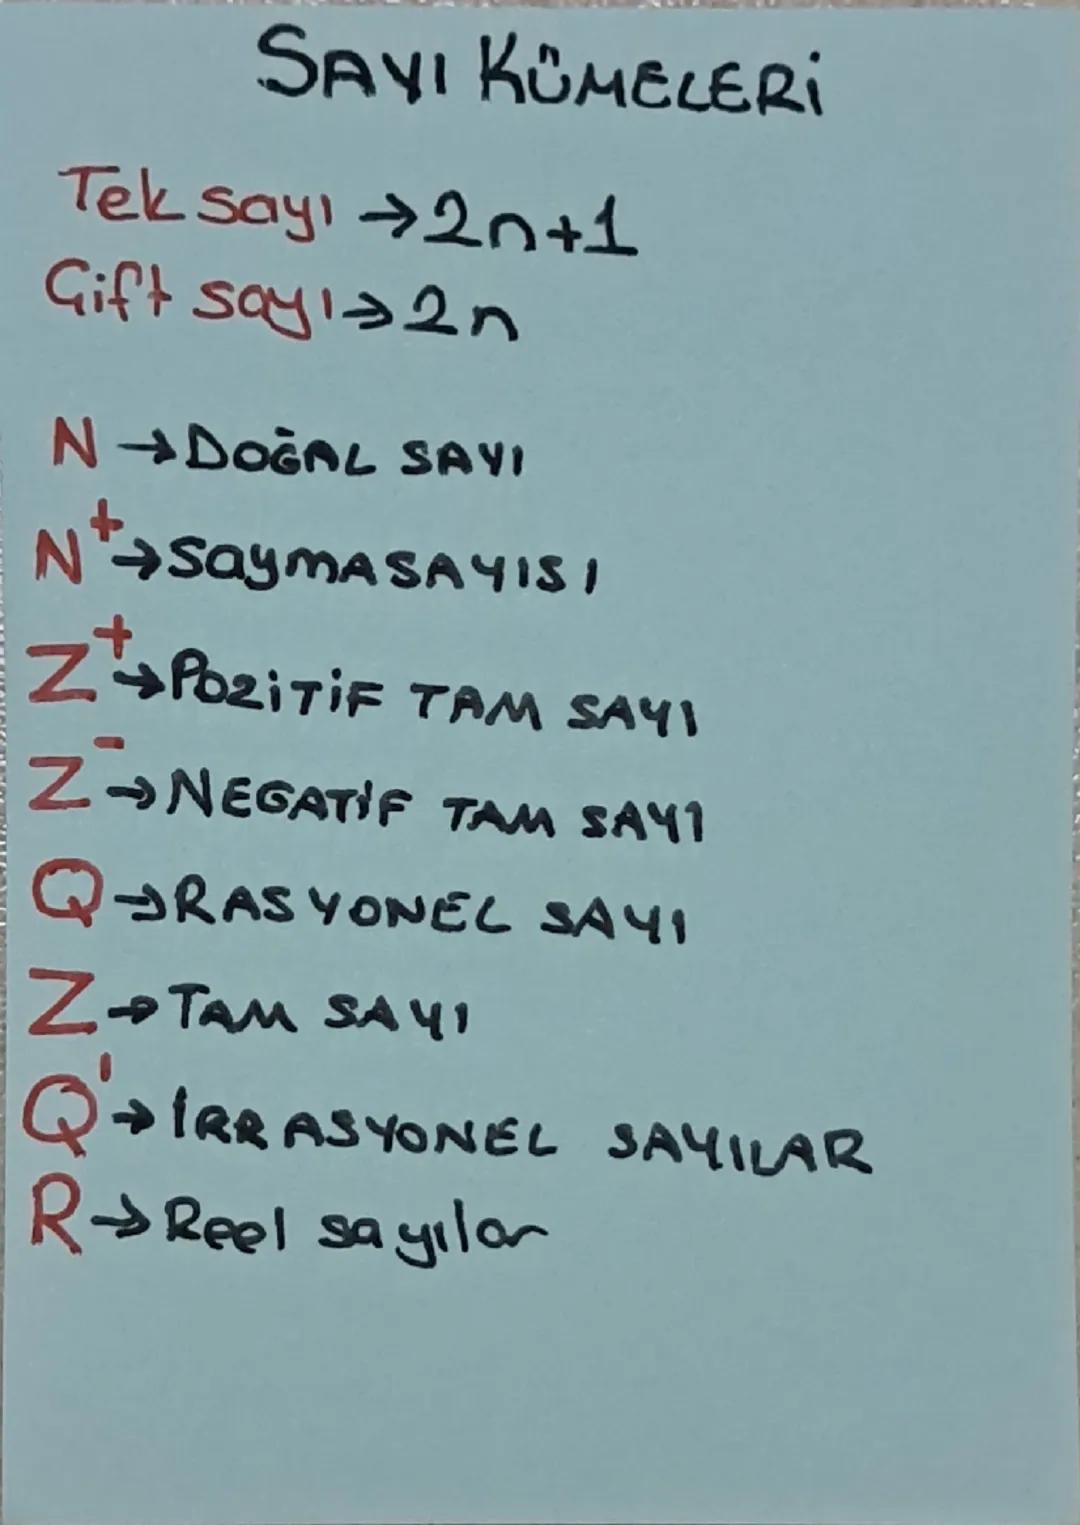 SAYI KÜMELERİ
Tek sayı → 2n+1
Çift sayı → 2n
N → DOĞAL SAYI
N⁺ → SaymASAYISI
Z⁺ → POZİTİF TAM SAYI
Z⁻ → NEGATİF TAM SAYI
Q → RASYONEL SAYI
Z → TAM SAYI
Q' → İRRASYONEL SAYILAR
R → Reel sayılar